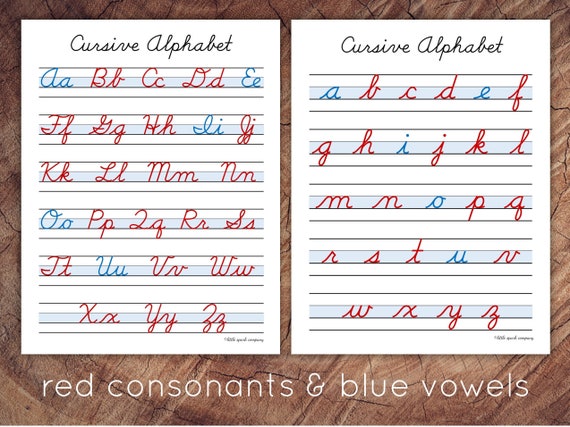 Cursive Alphabet
Aa Bb Cc Dd Ee
Ff Gg Hh Ii Jj
Kk Ll Mm Nn
Oo Pp Qq Rr Ss
Tt Uu Vv Ww
Xx Yy Zz
©little spark company
Cursive Alphabet
a b c d e f
g h i j k l
m n o p q
r s t u v
w x y z
©little spark company
red consonants & blue vowels